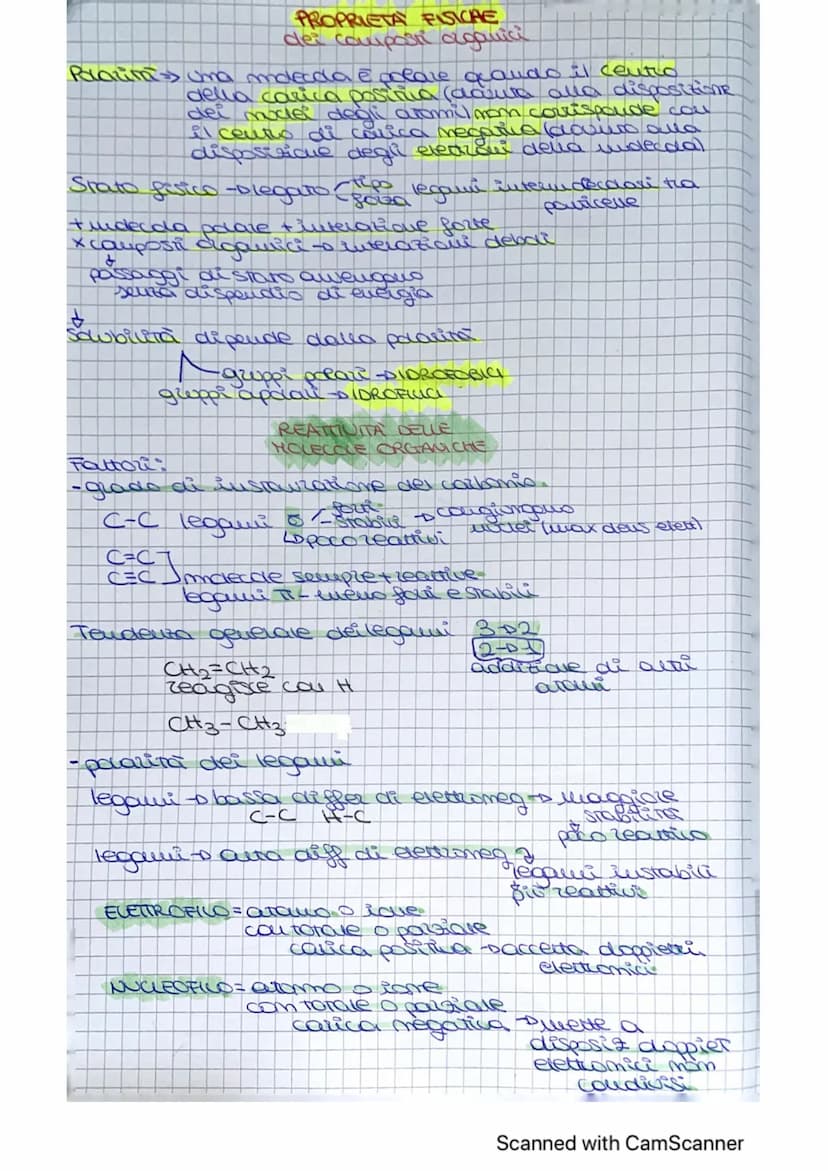 PROPRIETÀ FISICHE
dei composti organici
Polarità → una molecola è polare quando il centro
della carica positiva (dovuta alla disposizione
dei nuclei degli atomi) non corrisponde con
il centro di carica negativa (dovuto alla
disposizione degli elettroni della molecola)
Stato fisico → legato tipo legami intermolecolari tra
forza particelle
+ molecola polare + interazione forte
x composti organici → interazioni deboli
passaggi di stato avvengono
senza dispendio di energia
Solubilità dipende dalla polarità
gruppi polari → IDROFOBICI
gruppi apolari → IDROFILICI
REATTIVITÀ DELLE
MOLECOLE ORGANICHE
Fattori:
- grado di insaturazione del carbonio
C-C legami σ forti
stabili → congiungono
poco reattivi nuclei (max dens elett)
C=C
C≡C molecole sempre + reattive
legami π - meno forti e stabili
Tendenza generale dei legami 3→2
2→1
CH2=CH2 addizione di altri
reagisce con H atomi
CH3-CH3
- polarità dei legami
legami → bassa differ di elettroneg → maggiore
C-C H-C stabilità
poco reattivo
legami → alta diff di elettroneg
legami instabili
più reattivi
ELETTROFILO = atomo o ione
con totale o parziale
carica positiva → accetta doppietti
elettronici
NUCLEOFILO = atomo o ione
con totale o parziale
carica negativa → mette a
disposiz doppiet
elettronici non
condivisi
Scanned with CamScanner